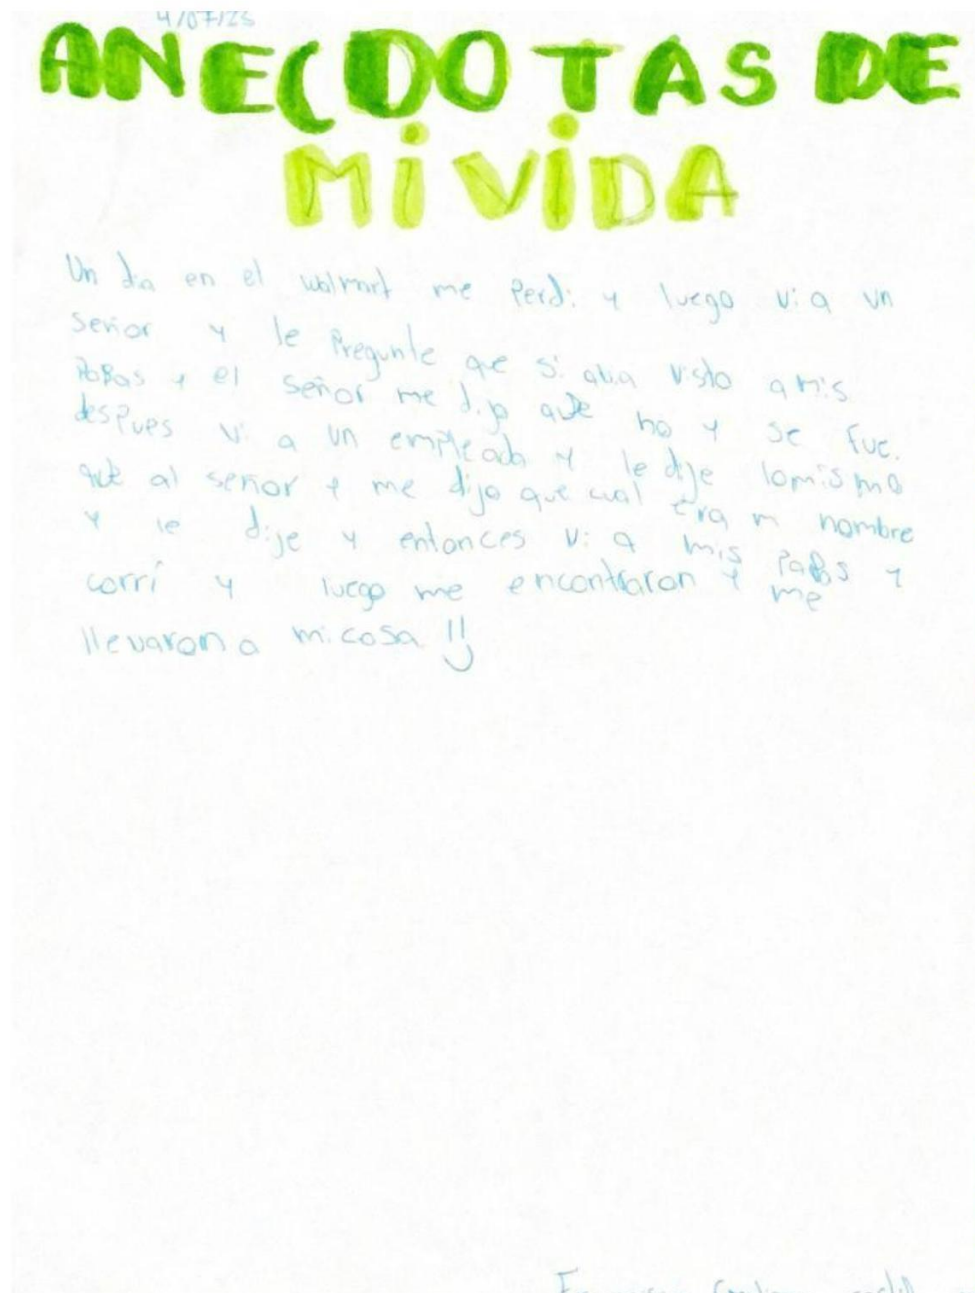 4/07/25
ANECDOTAS DE
MI VIDA
Un dia en el walmart me perdi y luego vi a un
señor y le pregunte que si avia visto a mis
papas y el señor me dijo que no y se fue.
despues vi a un empleado y le dije lo mismo
que al señor y me dijo que cual era mi nombre
y le dije y entonces vi a mis papas y
corrí y luego me encontraron y me
llevaron a mi casa !!